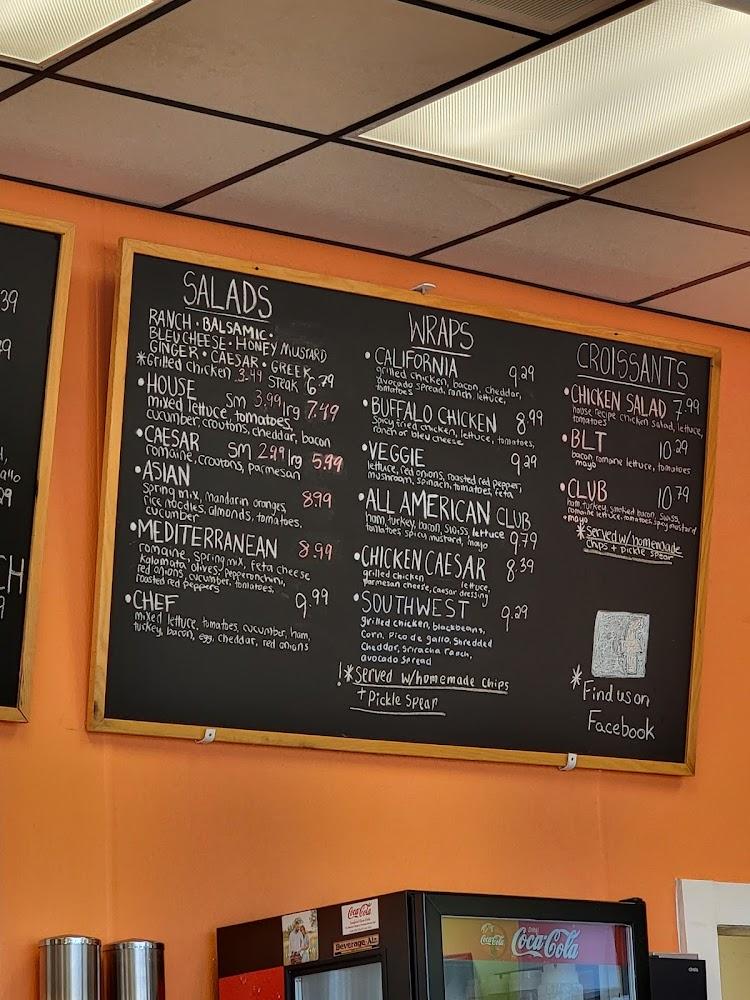 39
9
allo
29
CH
9
SALADS
RANCH • BALSAMIC •
BLEU CHEESE • HONEY MUSTARD
GINGER • CAESAR • GREEK
*Grilled chicken 3.49 Steak 6.79
• HOUSE sm 3.99 lrg 7.49
mixed lettuce, tomatoes,
cucumber, croutons, cheddar, bacon
• CAESAR sm 2.99 lrg 5.99
romaine, croutons, parmesan
• ASIAN 8.99
spring mix, mandarin oranges,
rice noodles, almonds, tomatoes,
cucumber
• MEDITERRANEAN 8.99
romaine, spring mix, feta cheese
kalamata olives, pepperonchini,
red onions, cucumber, tomatoes,
roasted red peppers
• CHEF 9.99
mixed lettuce, tomatoes, cucumber, ham,
turkey, bacon, egg, cheddar, red onions
WRAPS
• CALIFORNIA 9.29
grilled chicken, bacon, cheddar,
avocado spread, ranch, lettuce,
tomatoes
• BUFFALO CHICKEN 8.99
spicy fried chicken, lettuce, tomatoes,
ranch or bleu cheese
• VEGGIE 9.29
lettuce, red onions, roasted red pepper,
mushroom, spinach, tomatoes, feta
• ALL AMERICAN CLUB 9.79
ham, turkey, bacon, swiss, lettuce
tomatoes, spicy mustard, mayo
• CHICKEN CAESAR 8.39
grilled chicken lettuce,
parmesan cheese, caesar dressing
• SOUTHWEST 9.29
grilled chicken, blackbeans,
Corn, Pico de gallo, shredded
Cheddar, sriracha ranch,
avocado spread
!*served w/homemade chips
+ Pickle Spear
CROISSANTS
• CHICKEN SALAD 7.99
house recipe chicken salad, lettuce,
tomatoes
• BLT 10.29
bacon, romaine lettuce, tomatoes
mayo
• CLUB 10.79
ham, turkey, smoked bacon, swiss,
romaine lettuce, tomatoes, spicy mustard
+ mayo
*served w/homemade
chips + pickle spear
*Find us on
Facebook
Coca-Cola
Beverage-Air
Coca-Cola
Coca-Cola